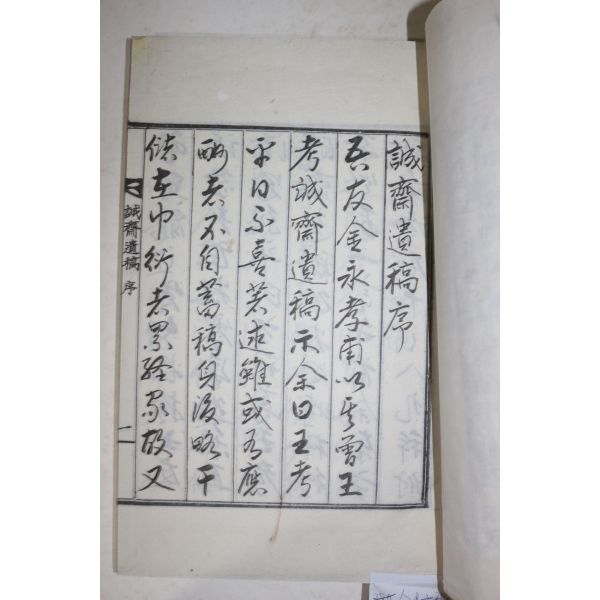 誠齋遺稿序
吾友金永孝甫以其曾王
考誠齋遺稿示余曰王考
平日不喜著述雖或有應
酬者不自蓄稿身後略干
儲在巾衍者累経家故又
誠齋遺稿 序
一